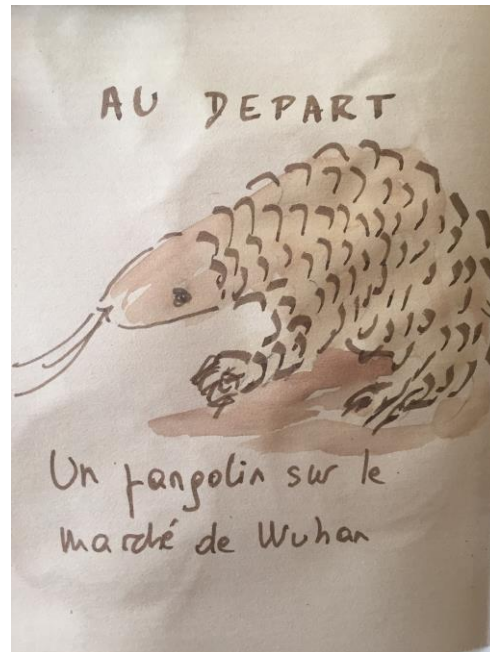 AU DEPART
Un pangolin sur le
marché de Wuhan